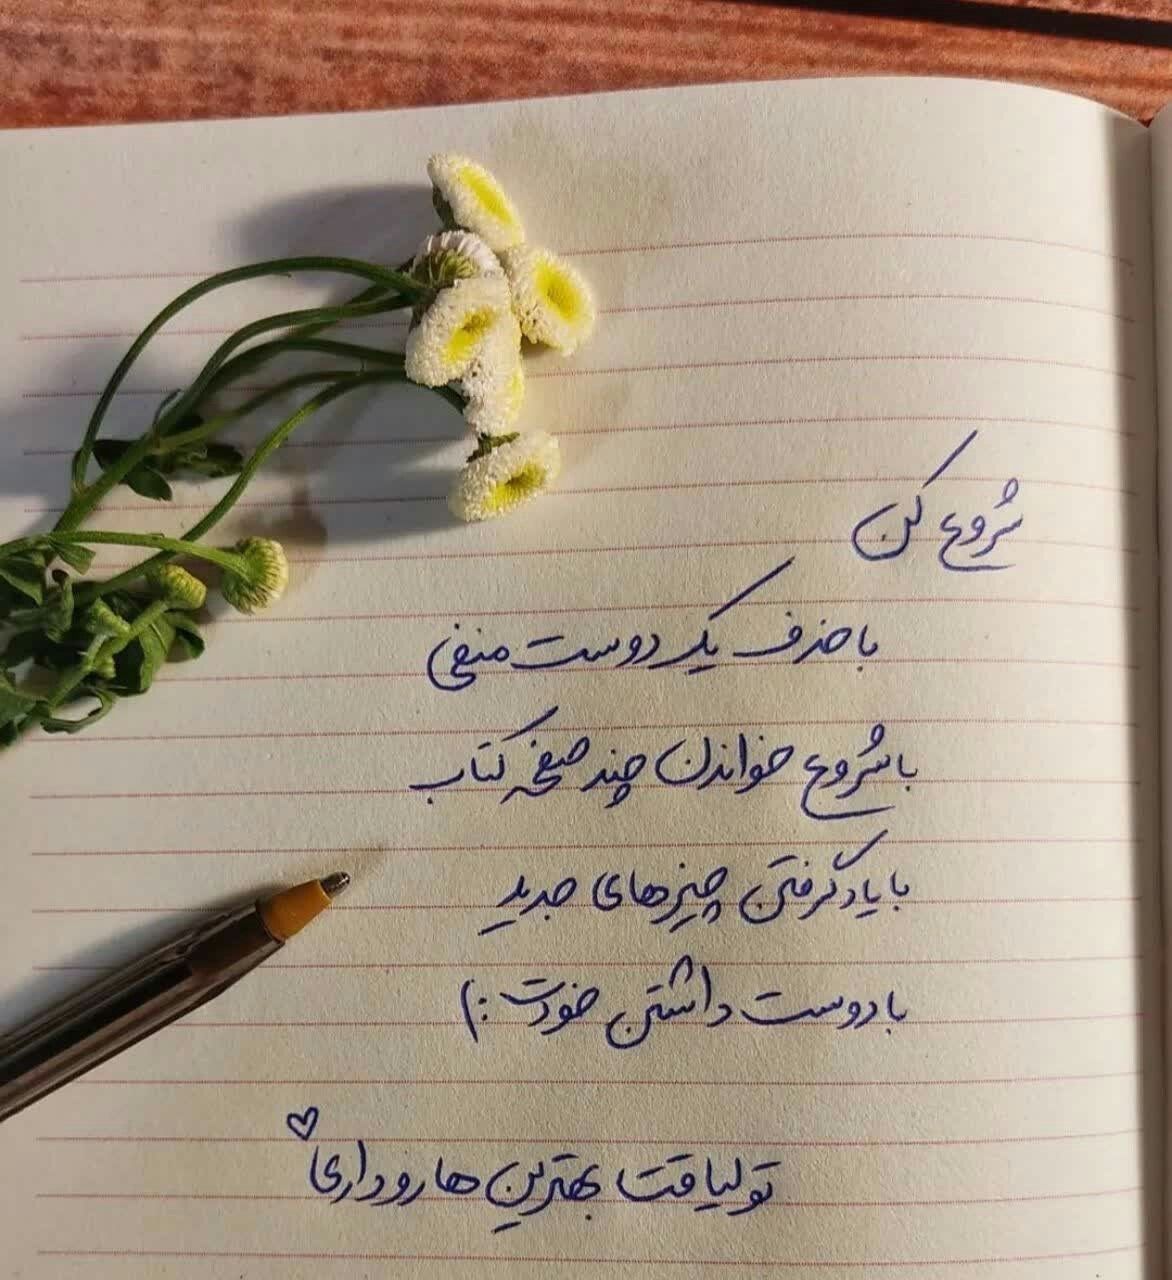 شروع کن
با حذف یک دوست منفی
با شروع خواندن چند صفحه کتاب
با یاد گرفتن چیزهای جدید
با دوست داشتن خودت :)
تو لیاقت بهترین ها رو داری♡